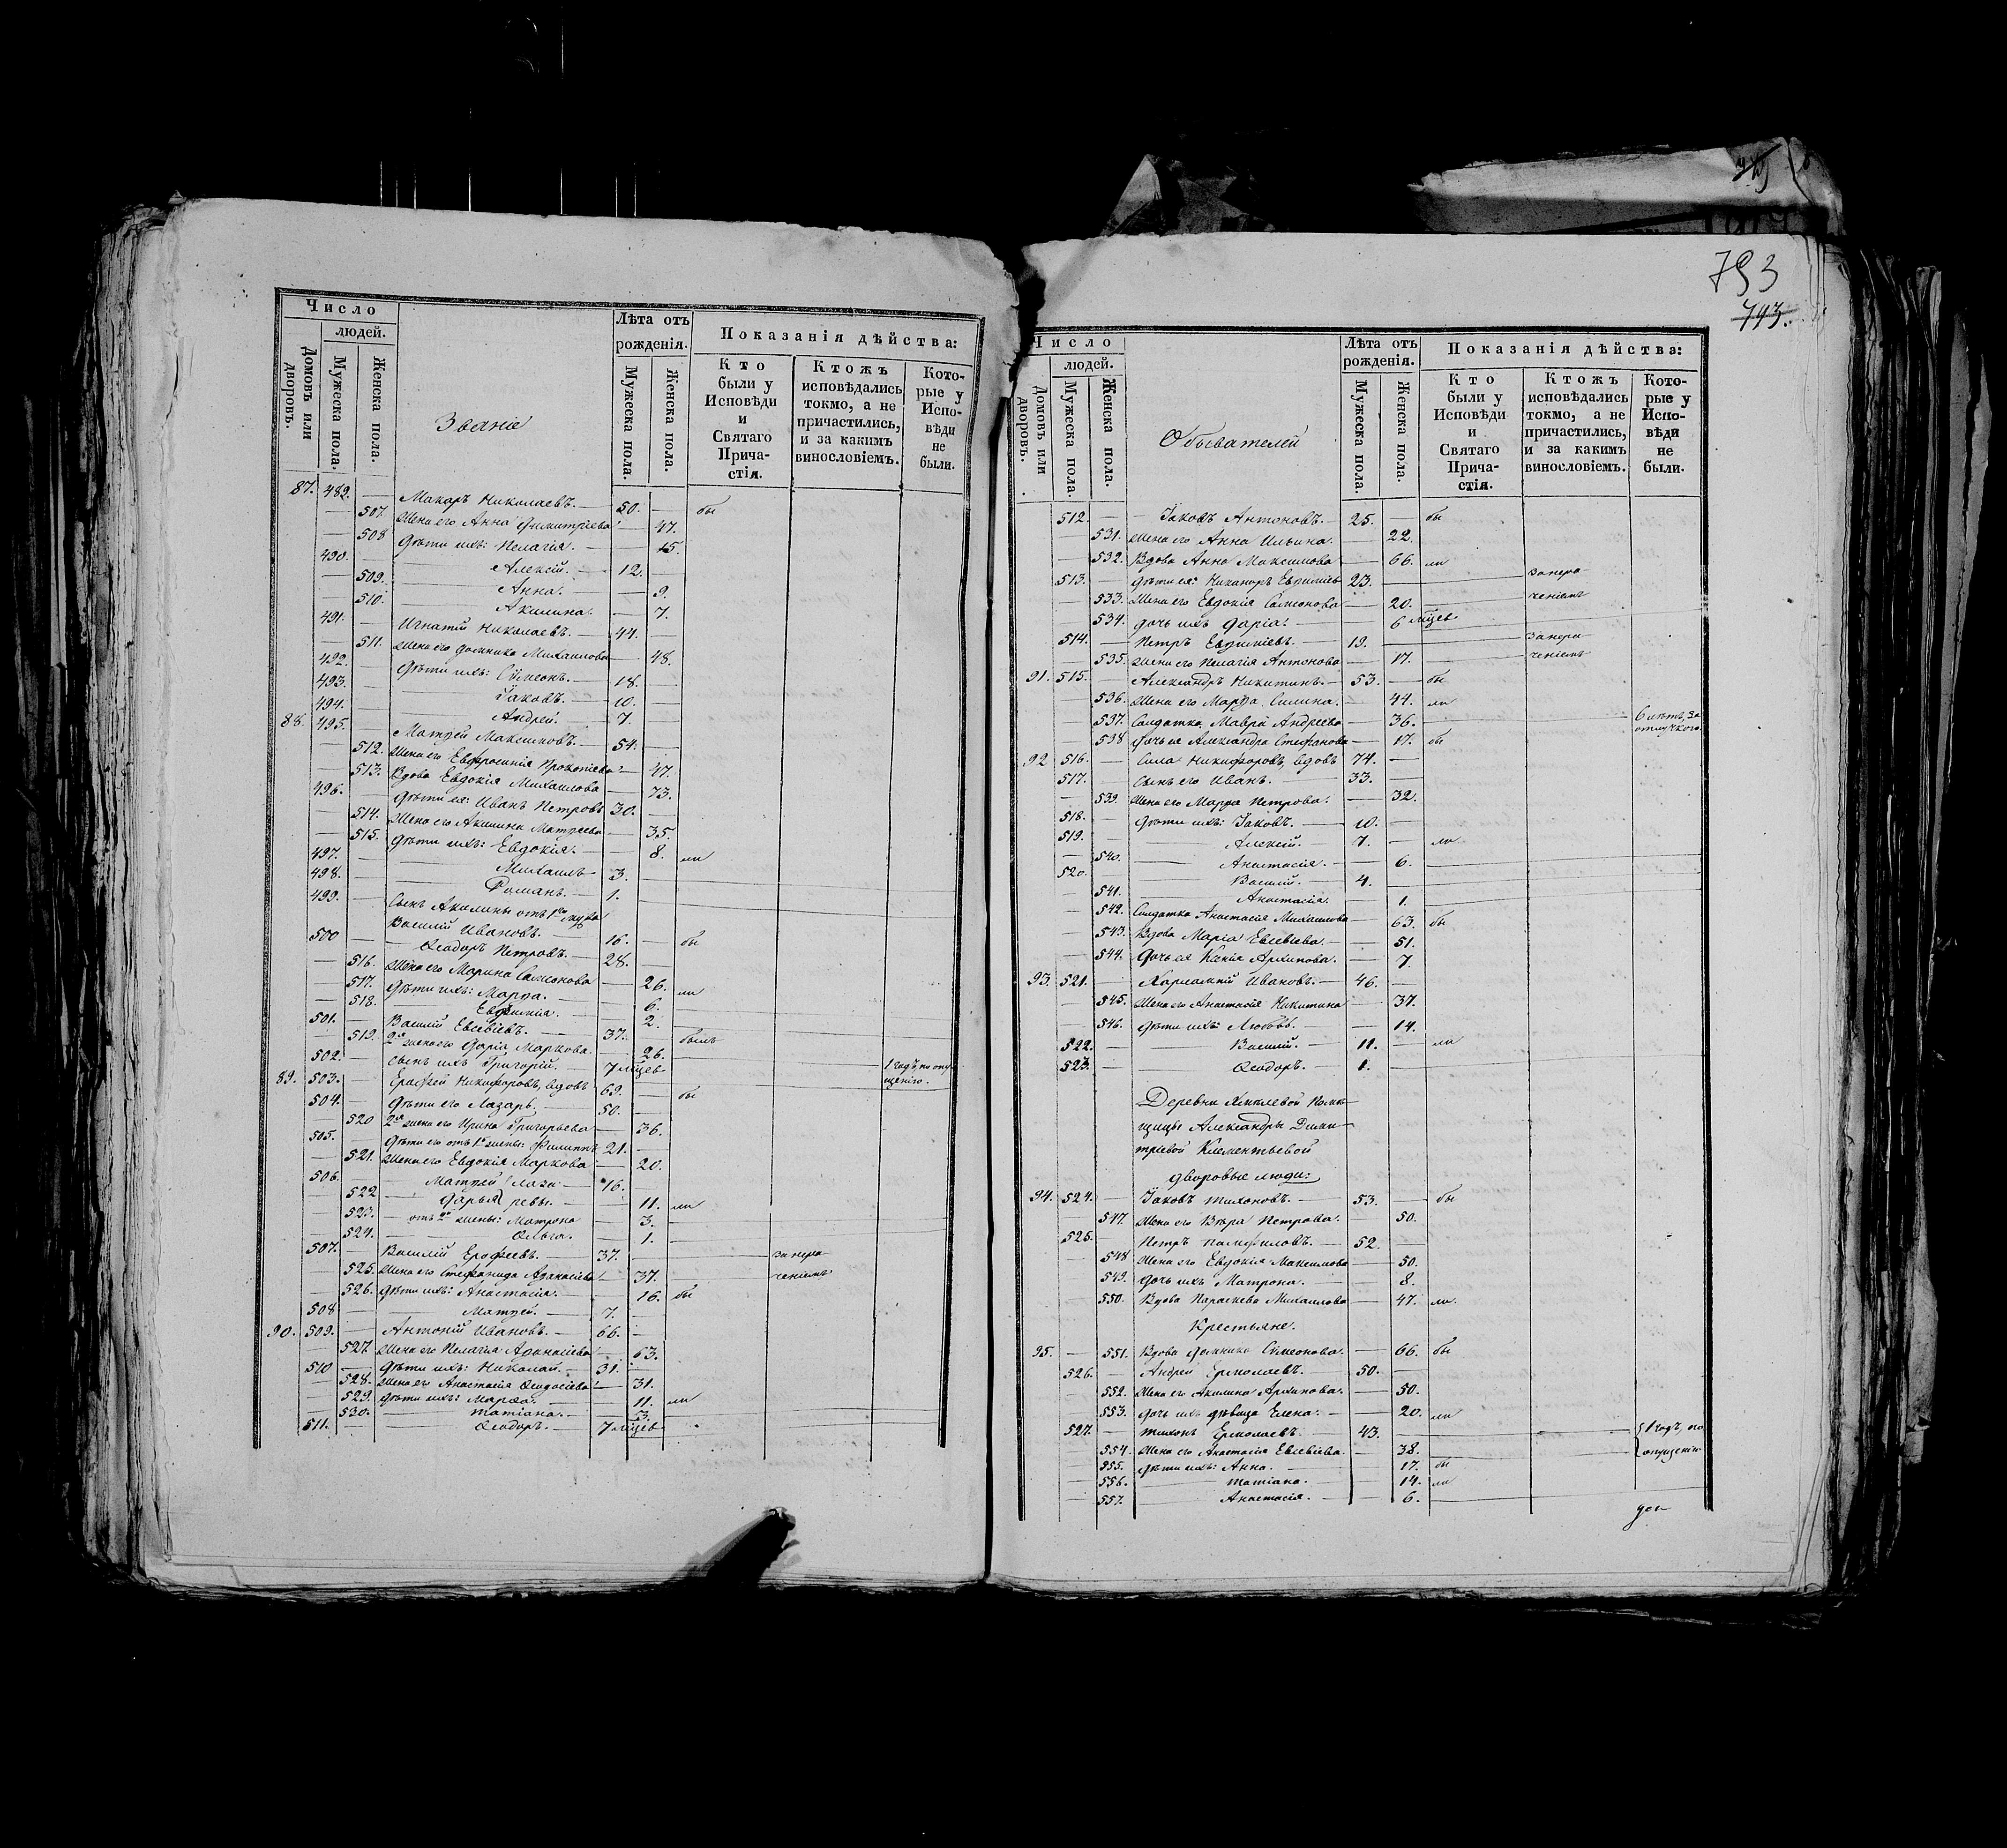 Число
людей.
Домовъ или дворовъ.
Мужеска пола.
Женска пола.
Званіе
Лѣта отъ рожденія.
Мужеска пола.
Женска пола.
Показанія дѣйства:
Кто были у Исповѣди и Святаго Прича-стія.
Ктожъ исповѣдались токмо, а не причастились, и за какимъ винословіемъ.
Кото-рые у Испо-вѣди не были.
87. 489. — Макаръ Николаевъ. — 50. — бы
— 507. Жена его Анна Димитріева — 47.
— 508 Дѣти ихъ: Пелагія. — 15.
490. — Алексій. — 12. —
— 509. Анна. — 9.
— 510. Акилина. — 7.
491. — Игнатій Николаевъ. — 44. —
— 511. Жена его Домника Михаилова — 48.
492. — Дѣти ихъ: Сѵмеонъ. — 18. —
493. — Іаковъ. — 10. —
494. — Андрей. — 7. —
88. 495. — Матѳей Максимовъ. — 54. —
— 512. Жена его Евфросинія Прокопіева — 47.
— 513. Вдова Евдокія Михаилова — 73.
496. — Дѣти ея: Иванъ Петровъ 30. —
— 514. Жена его Акилина Матѳеева — 35.
— 515. Дѣти ихъ: Евдокія. — 8. ли
497. — Михаилъ 3. —
498. — Романъ. — 1. —
499. — Сынъ Акилины отъ 1го мужа
Василій Ивановъ. — 16. — бы
500 — Ѳеодоръ Петровъ. — 28. —
— 516. Жена его Марина Симеонова — 26.
— 517. Дѣти ихъ: Марѳа. — 6. ли
— 518. Евфимія. — 2.
501. — Василій Евсевіевъ. — 37. — былъ
— 519. 2я жена его Дарія Маркова. — 26.
502. — Сынъ ихъ Григорій. — 7 мѣсцев 1 годъ, по опу-
89. 503. — Ерофей Никифоровъ, вдовъ 69. — бы щенію.
504. — Дѣти его Лазарь. — 50. —
— 520 2я жена его Ирина Григорьева — 36.
505. — Дѣти его отъ 1й жены: Филиппъ 21. —
— 521. Жена его Евдокія Маркова — 20.
506. — Матѳей Лаза- 16. —
— 522 — Дарья ревы. — 11. ли
— 523. — отъ 2й жены: Матрона — 3.
— 524. Ольга. — 1.
507. — Василій Ерофеевъ. — 37. — за нера-
— 525. Жена его Стефанида Аѳанасіева — 37. ченіемъ
— 526. Дѣти ихъ: Анастасія. — 16. бы
508 — Матѳей. — 7. —
90. 509. — Антоній Ивановъ. — 66. —
— 527. Жена его Пелагія Аѳанасіева — 63.
510 — Дѣти ихъ: Николай. — 31. —
— 528. Жена его Анастасія Ѳеодосіева — 31.
— 529. Дѣти ихъ: Марѳа. — 11. ли
— 530. Татіана. — 3.
511. — Ѳеодоръ. — 7 мѣсцев
753
793.
Число
людей.
Домовъ или дворовъ.
Мужеска пола.
Женска пола.
Обывателей
Лѣта отъ рожденія.
Мужеска пола.
Женска пола.
Показанія дѣйства:
Кто были у Исповѣди и Святаго Прича-стія.
Ктожъ исповѣдались токмо, а не причастились, и за какимъ винословіемъ.
Кото-рые у Испо-вѣди не были.
512. — Іаковъ Антоновъ. — 25. — бы
— 531. Жена его Анна Ильина. — 22.
— 532. Вдова Анна Максимова — 66. ли
513. — Дѣти ея: Никаноръ Евѳиміев 23. — за нера-
— 533. Жена его Евдокія Симеонова — 20. ченіемъ
— 534. Дочь ихъ Дарія. — 6 мѣсцев
514. — Петръ Евѳиміевъ. — 19. — за нера-
— 535. Жена его Пелагія Антонова — 17. ченіемъ
91. 515. — Александръ Никитинъ — 53. — бы
— 536. Жена его Марѳа Силина. — 44. ли
— 537. Солдатка Мавра Андреева — 36. 6 лѣтъ, за
— 538 Дочь ея Александра Стефанова — 17. бы отлучкою.
92 516. — Сила Никифоровъ, вдовъ 74. —
517. — Сынъ его Иванъ. — 33. —
— 539. Жена его Марѳа Петрова. — 32.
518. — Дѣти ихъ: Іаковъ. — 10. —
519. — Алексій. — 7. — ли
— 540. Анастасія. — 6.
520. — Василій. — 4. —
— 541. Анастасія. — 1.
— 542. Солдатка Анастасія Михаилова — 63. бы
— 543. Вдова Марія Евсевіева. — 51.
— 544. Дочь ея Ксенія Архипова. — 7.
93. 521. — Харлампій Ивановъ. — 46. —
— 545. Жена его Анастасія Никитина — 37.
— 546. Дѣти ихъ Любовь. — 14.
522. — Василій. — 11. — ли
523. — Ѳеодоръ. — 1. —
Деревни Хмѣлевой Помѣ-
щицы Александры Дими-
тріевой Клементьевой
дворовые люди:
94. 524. — Іаковъ Тихоновъ. — 53. — бы
— 547. Жена его Вѣра Петрова. — 50.
525. — Петръ Памфиловъ. — 52. —
— 548 Жена его Евдокія Максимова — 50.
— 549. Дочь ихъ Матрона. — 8.
— 550. Вдова Параскева Михаилова — 47. ли.
Крестьяне.
95. — 551. Вдова Домника Сѵмеонова. — 66. бы
526. — Андрей Ермолаевъ. — 50. —
— 552. Жена его Акилина Архипова. — 50.
— 553. Дочь ихъ дѣвица Елена. — 20. ли
527. — Тихонъ Ермолаевъ. — 43. — 1 годъ, по
— 554. Жена его Анастасія Евсевіева. — 38. опущенію
— 555. Дѣти ихъ: Анна. — 17. бы
— 556. Татіана. — 14. ли
— 557. Анастасія. — 6.